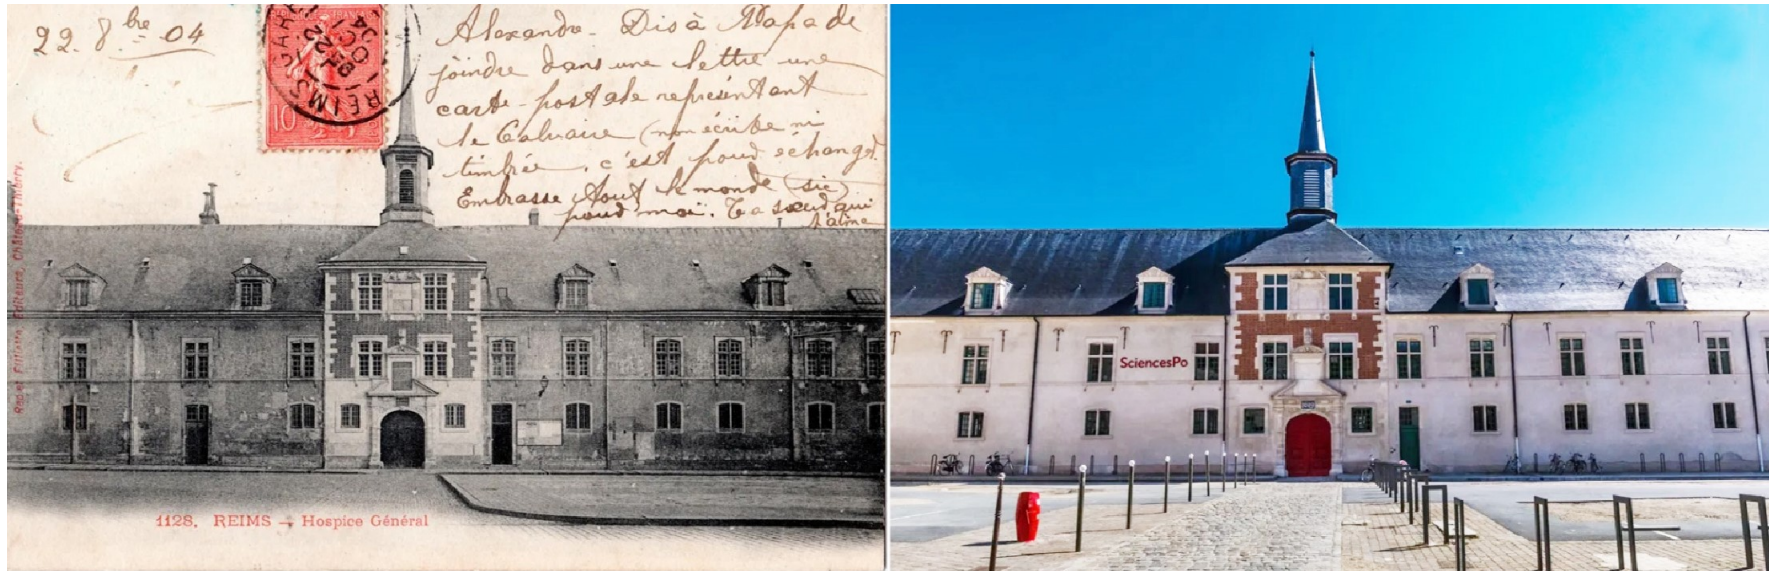 22. 8bre 04
Alexandre - Dis à Papa de
joindre dans une lettre une
carte-postale représentant
le Calvaire (non écrite ni
timbrée, c'est pour échanger.
Embrasse tout le monde (sic)
pour moi. Ta sœur qui
t'aime
REIMS GARE
10
1128. REIMS - Hospice Général
SciencesPo